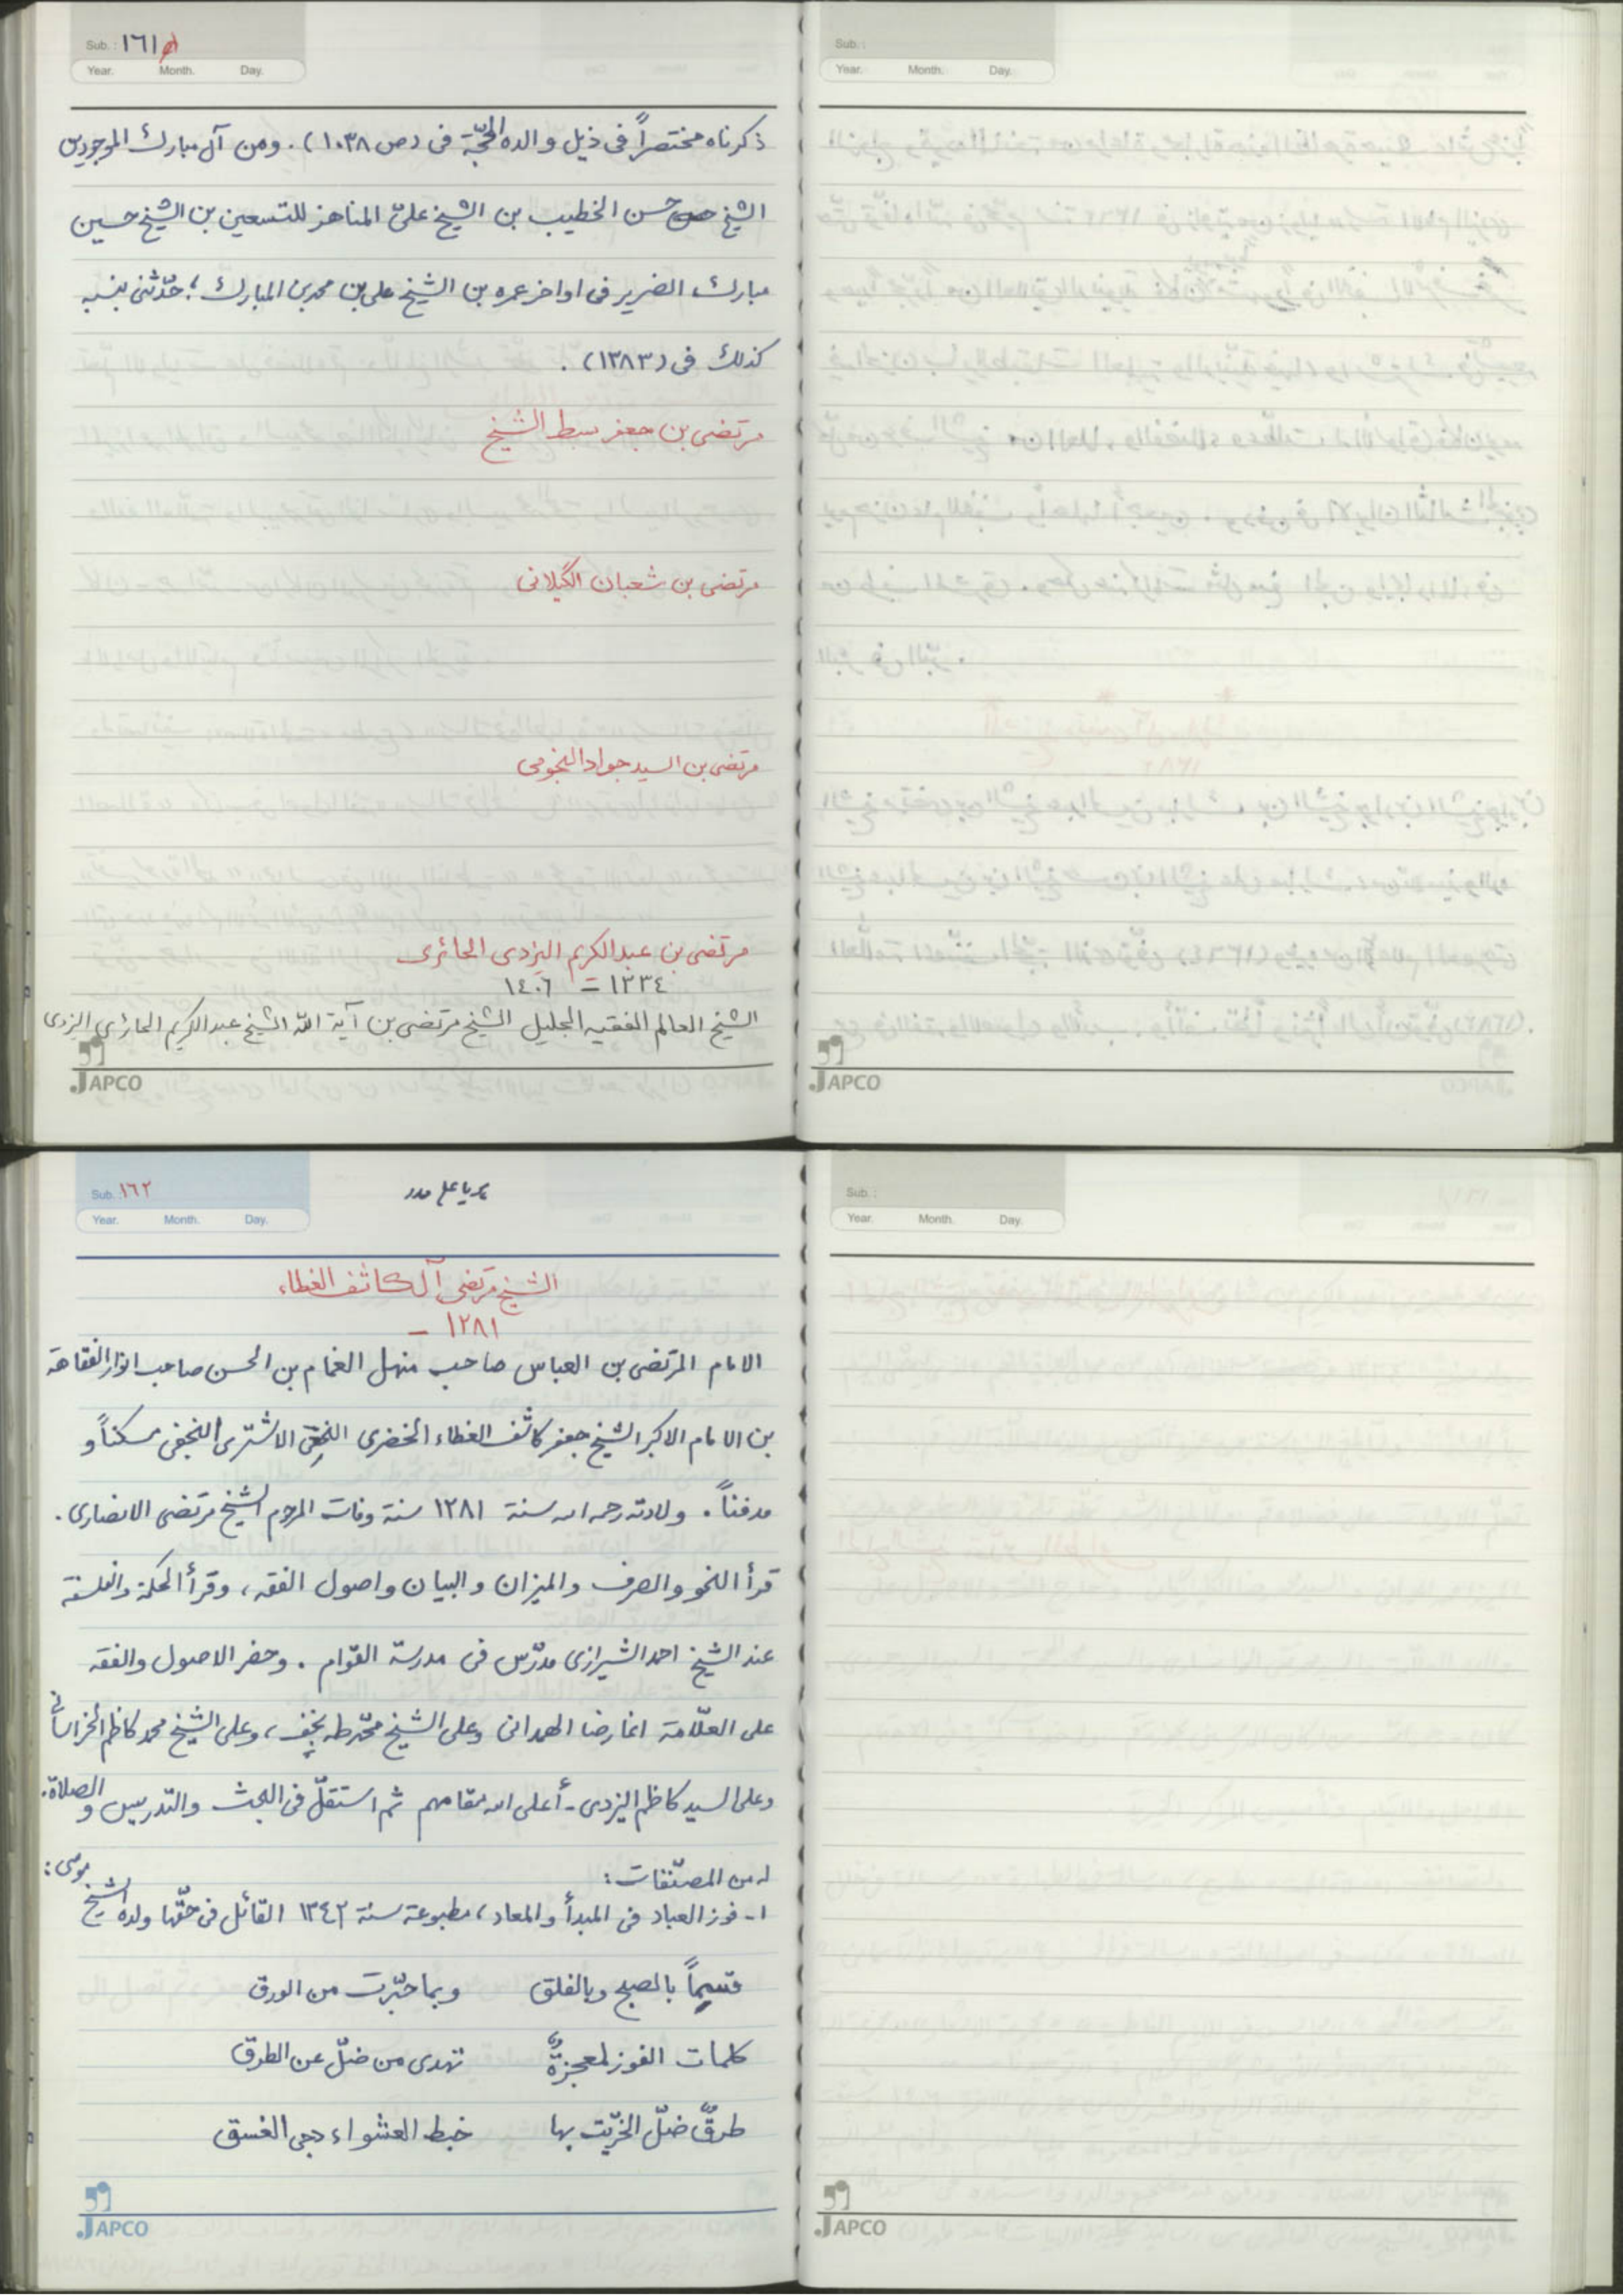 Sub.: ١٦١
Year. Month. Day.
ذكرناه مختصراً فى ذيل والده الحجّة فى (ص ١٠٣٨). ومن آل مبارك الموجودين
الشيخ حسن الخطيب بن الشيخ علىّ المناهز للتسعين بن الشيخ حسين
مبارك الضرير فى اواخر عمره بن الشيخ على بن محمد بن المبارك؛ حدّثنى بنسبه
كذلك فى (١٣٨٣).
مرتضى بن جعفر سبط الشيخ
مرتضى بن شعبان الگيلانى
مرتضى بن السيد جواد النجومى
مرتضى بن عبد الكريم اليزدى الحائرى
١٣٣٤ = ١٤٠٦
الشيخ العالم الفقيه الجليل الشيخ مرتضى بن آية الله الشيخ عبد الكريم الحائرى اليزدى
JAPCO
Sub.:
Year. Month. Day.
JAPCO
Sub.: ١٦٢
Year. Month. Day.
يا على مدد
الشيخ مرتضى آل كاشف الغطاء
١٢٨١ –
الامام المرتضى بن العباس صاحب منهل الغمام بن الحسن صاحب انوار الفقاهة
بن الامام الاكبر الشيخ جعفر كاشف الغطاء الخضرى النخعى الاشترى النجفى مسكناً و
مدفناً. ولادته رحمه الله سنة ١٢٨١ سنة وفات المرحوم الشيخ مرتضى الانصارى.
قرأ النحو والصرف والميزان والبيان واصول الفقه، وقرأ الحكمة والفلسفة
عند الشيخ احمد الشيرازى مدرّس فى مدرسة القوّام. وحضر الاصول والفقه
على العلّامة اغا رضا الهمدانى وعلى الشيخ محمّد طه نجف، وعلى الشيخ محمد كاظم الخراسانى
وعلى السيد كاظم اليزدى - أعلى الله مقامهم ثم استقلّ فى البحث والتدريس و الصلاة.
له من المصنّفات:
١- فوز العباد فى المبدأ والمعاد، مطبوعة سنة ١٣٤٢ القائل فى حقّها ولده الشيخ موسى:
قسماً بالصبح وبالفلق وبما حبّرت من الورق
كلمات الفوز لمعجزةٌ تهدى من ضلّ عن الطرق
طرقٌ ضلّ الخرّيت بها خبط العشواء دجى الغسق
JAPCO
Sub.:
Year. Month. Day.
JAPCO